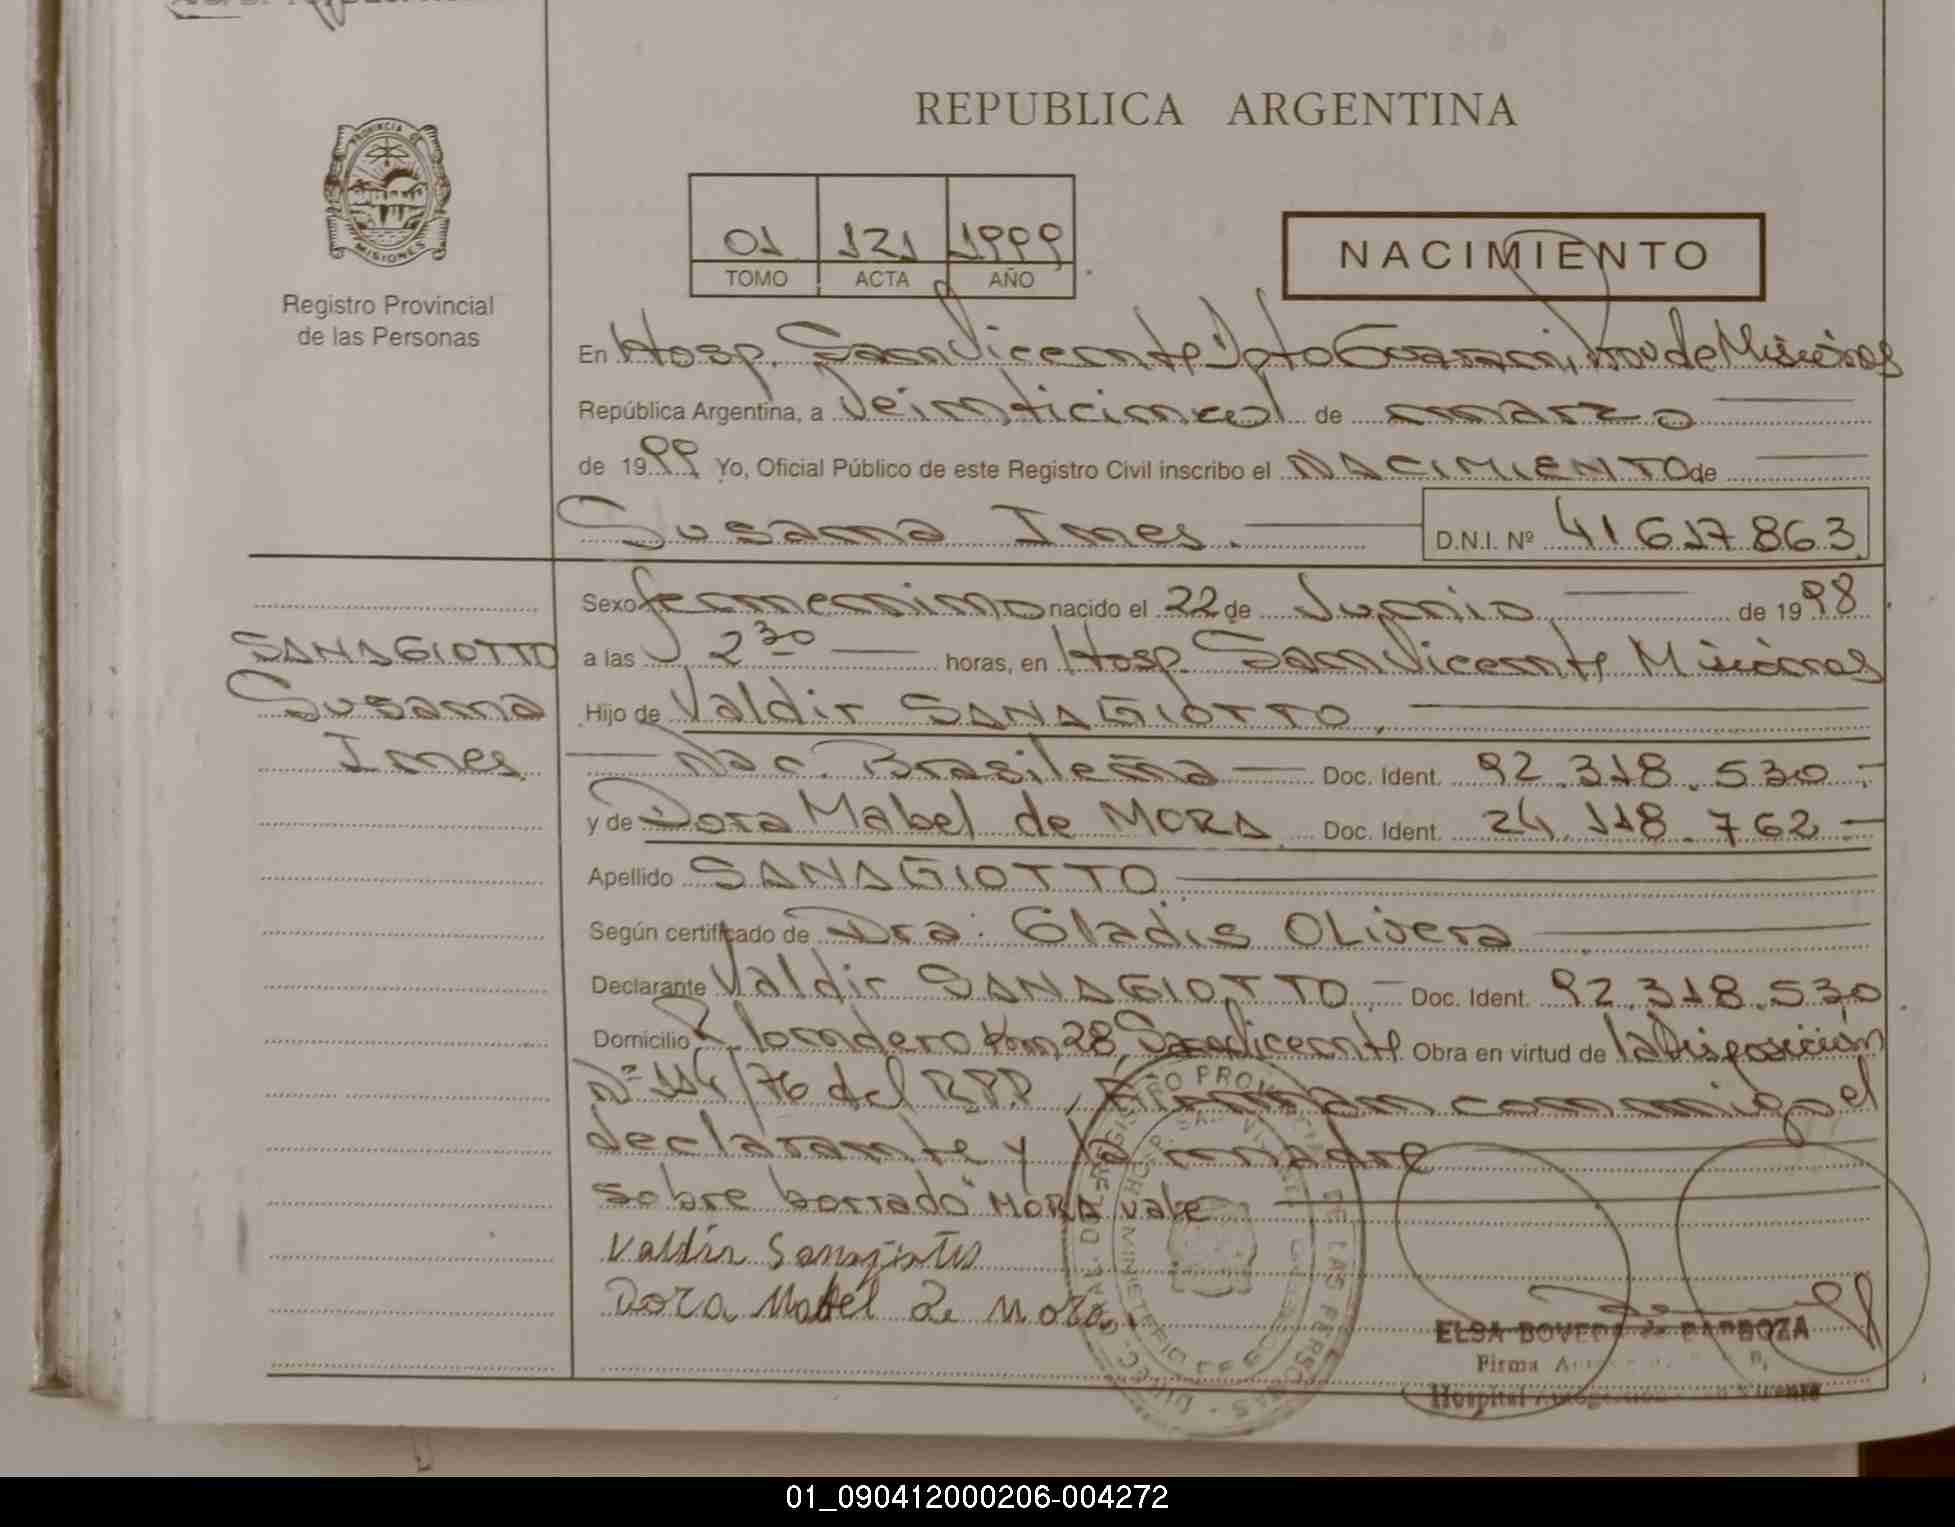 REPUBLICA ARGENTINA
PROVINCIA DE
MISIONES
Registro Provincial
de las Personas
01 121 1999
TOMO ACTA AÑO
NACIMIENTO
En Hosp. San Vicente Dpto Guarani, Prov de Misiones
República Argentina, a Veinticinco de marzo
de 1999 Yo, Oficial Público de este Registro Civil inscribo el NACIMIENTO de
Susana Ines.
D.N.I. Nº 41617863
SANAGIOTTO
Susana
Ines
Sexo femenino nacido el 22 de Junio de 1998
a las 2 30 horas, en Hosp. San Vicente Misiones
Hijo de Valdir SANAGIOTTO
Nac. Brasileña Doc. Ident. 92.318.530
y de Dora Mabel de MORA Doc. Ident. 24.118.762
Apellido SANAGIOTTO
Según certificado de Dra. Gladis OLivera
Declarante Valdir SANAGIOTTO Doc. Ident. 92.318.530
Domicilio km 28, San Vicente Obra en virtud de la Disposición
Nº 114/76 del RPP, Firman conmigo el
declarante y la madre
sobre borrado "MORA vale
Valdir Sanagiotto
Dora Mabel de Mora
ELSA BOVEDA de BARBOZA
Firma
Hospital
DE LAS PERSONAS
MINISTERIO DE GOBIERNO
01_090412000206-004272